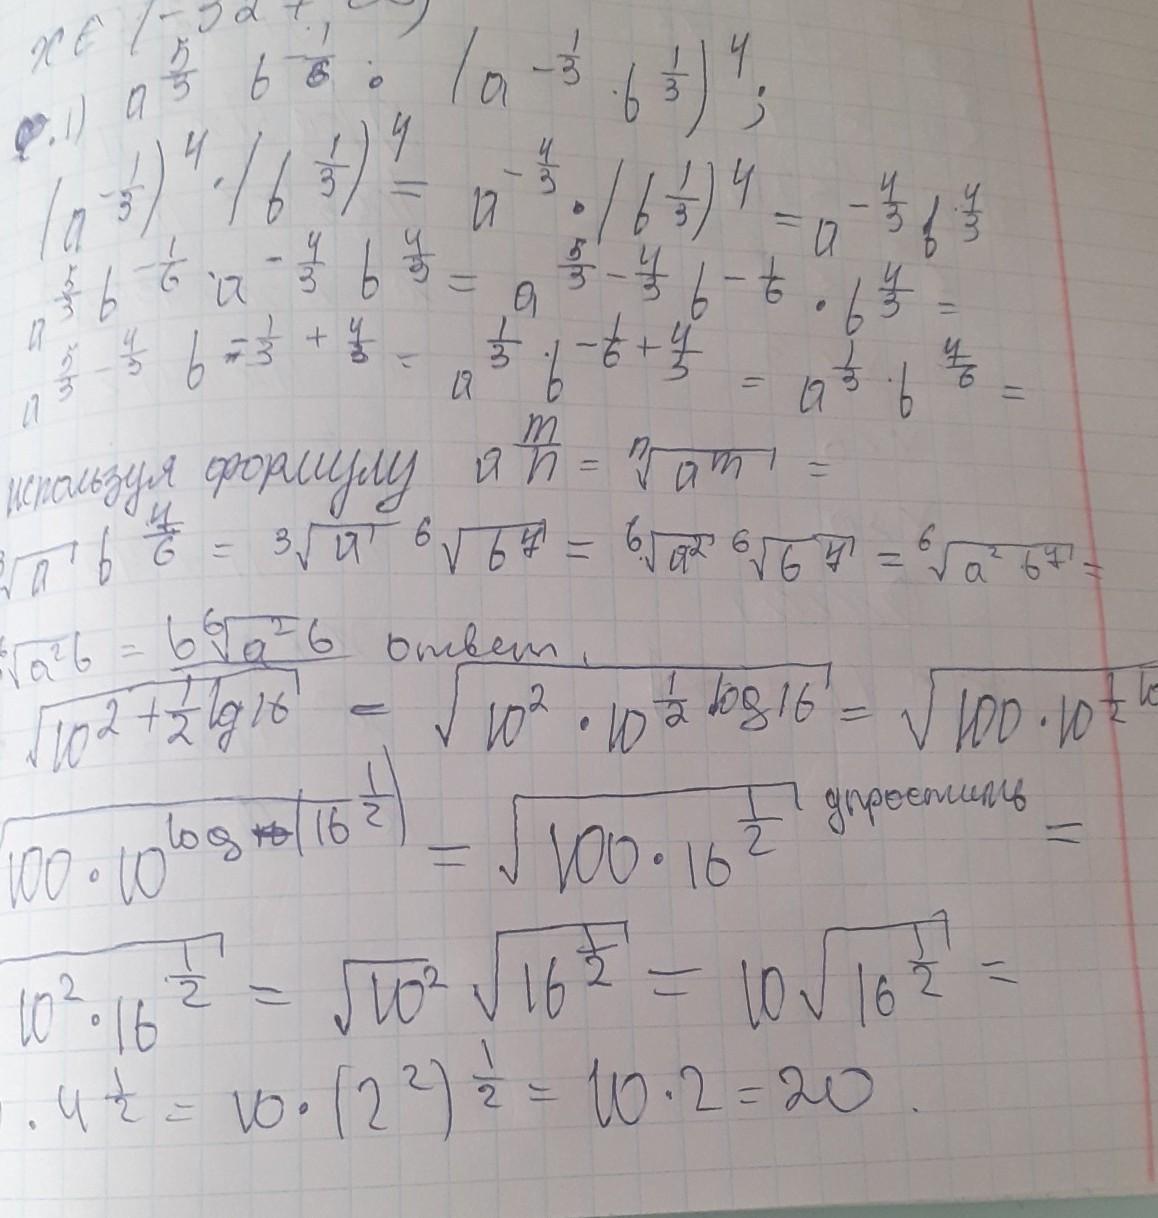 x ∈ (-327
1) a^{5/3} b^{-1/6} : (a^{-1/3} · b^{1/3})^4;
(a^{-1/3})^4 · (b^{1/3})^4 = a^{-4/3} · (b^{1/3})^4 = a^{-4/3} b^{4/3}
a^{5/3} b^{-1/6} · a^{-4/3} b^{4/3} = a^{5/3 - 4/3} b^{-1/6} · b^{4/3} =
a^{5/3 - 4/3} b^{-1/3 + 4/3} = a^{1/3} · b^{-1/6 + 4/3} = a^{1/3} · b^{7/6} =
используя формулу a^{m/n} = ⁿ√a^m =
³√a b^{7/6} = ³√a ⁶√b^7 = ⁶√a² ⁶√b^7 = ⁶√a² b^7 =
√a²b = b ⁶√a² b ответ.
√10^{2 + 1/2 lg 16} = √10² · 10^{1/2 log 16} = √100 · 10^{1/2 lo
√100 · 10^{log (16^{1/2})} = √100 · 16^{1/2} упростить =
10² · 16^{1/2} = √10² √16^{1/2} = 10 √16^{1/2} =
· 4^{1/2} = 10 · (2²)^{1/2} = 10 · 2 = 20.